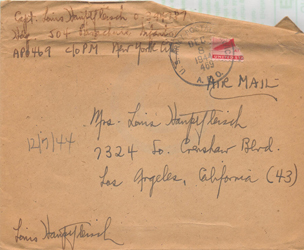 Capt. Louis Haupfleisch
Hq 504 Parachute Infantry
APO 469 c/o PM New York City
DEC
8
194
469
A.P.O.
AIR MAIL
Mrs. Louis Haupfleisch
7324 So. Crenshaw Blvd.
Los Angeles, California (43)
12/7/44
Louis Haupfleisch